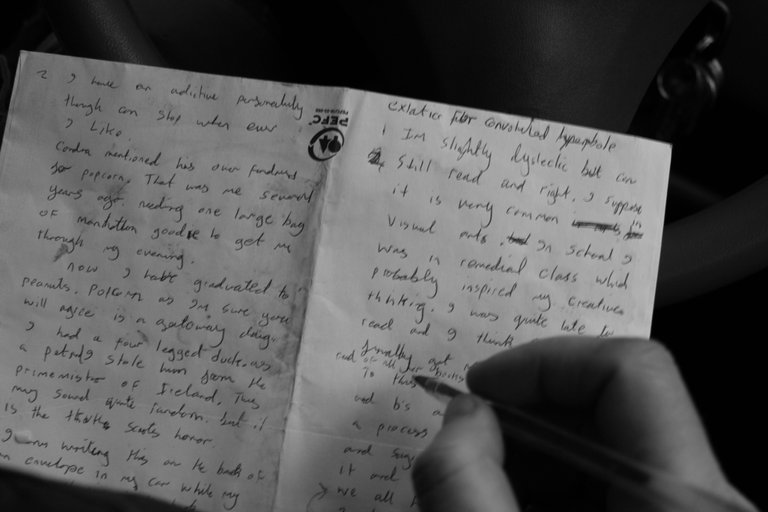 2 I have an adictive personality
though can stop when ever
I like.
Condra mentioned his over fondness
for popcorn. That was me several
years ago. needing one large bag
of manhatton goodie to get me
through my evening.
now I have graduated to
peanuts. Popcorn as I'm sure youre
will agree is a gateaway drug.
I had a four legged duck. was
a petrolg stole him from the
primeminister of Ireland. This
may sound quite random. but it
is the thruths scouts honor
I am writing this on the back of
an envelope in my car while my
PEFC
exlatics for convoluted hyperphole
1 Im slightly dyslectic but can
Still read and right. I suppose
it is very common in
visual arts. In School I
was in remedial class which
probably inspired my creative
thinking. I was quite late to
read and I think
finally got
to this
and b's a
a process
and sug
it and
we all